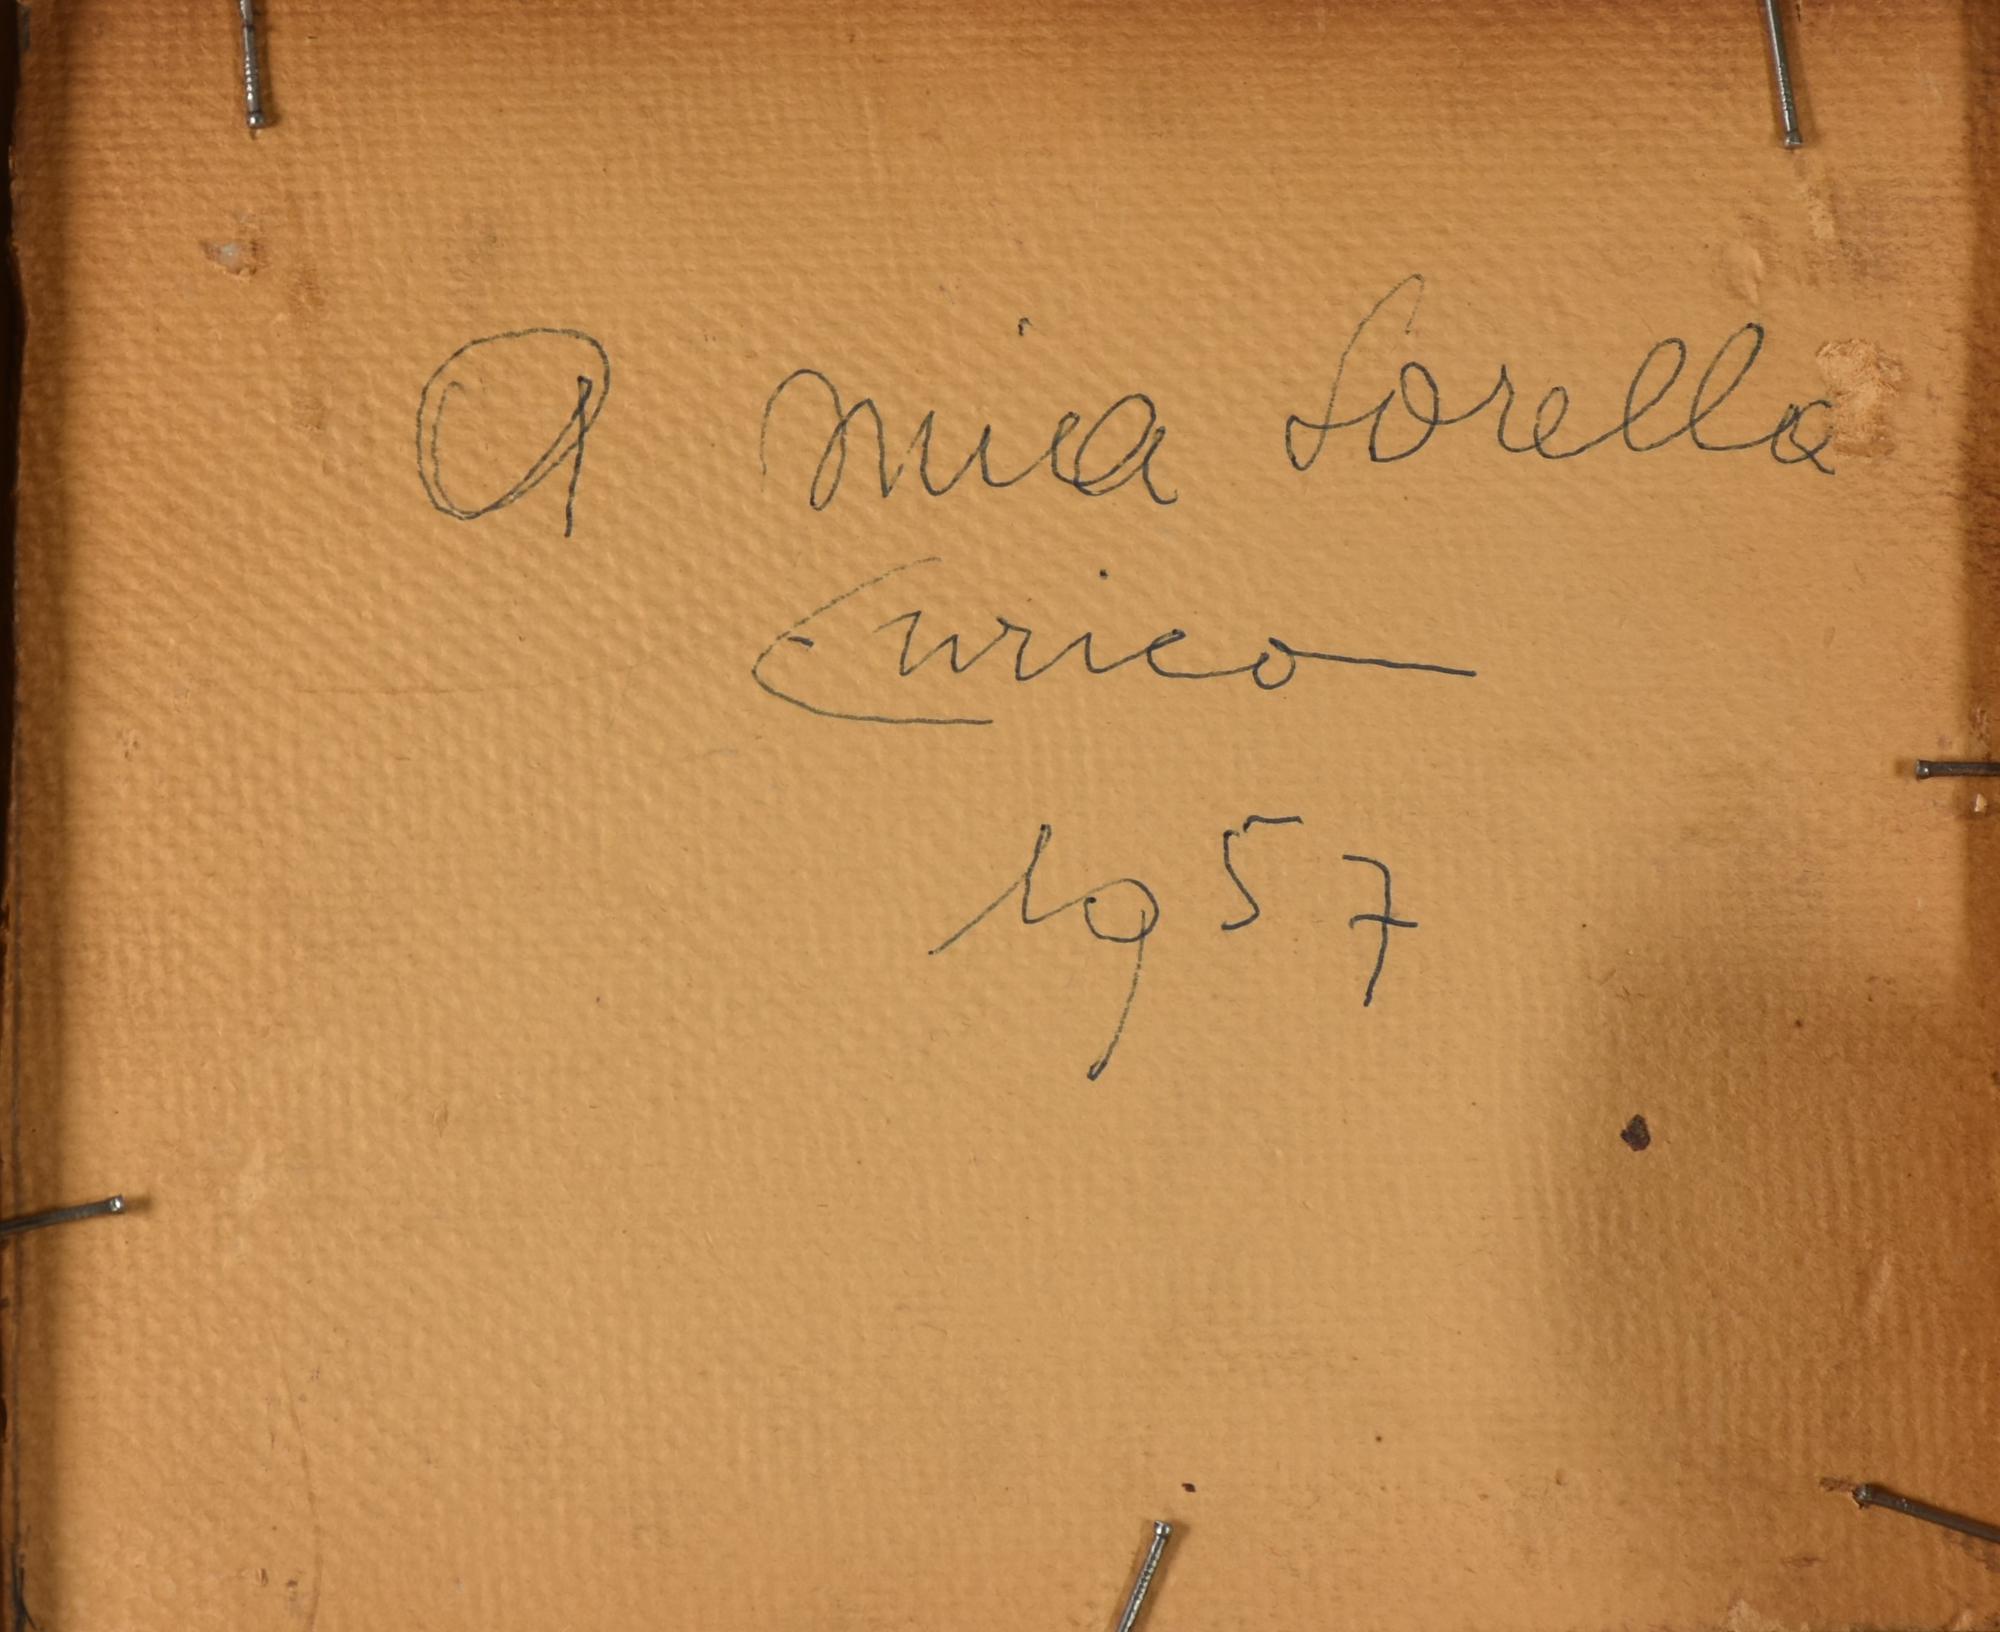 A mia Sorella
Enrico
1957